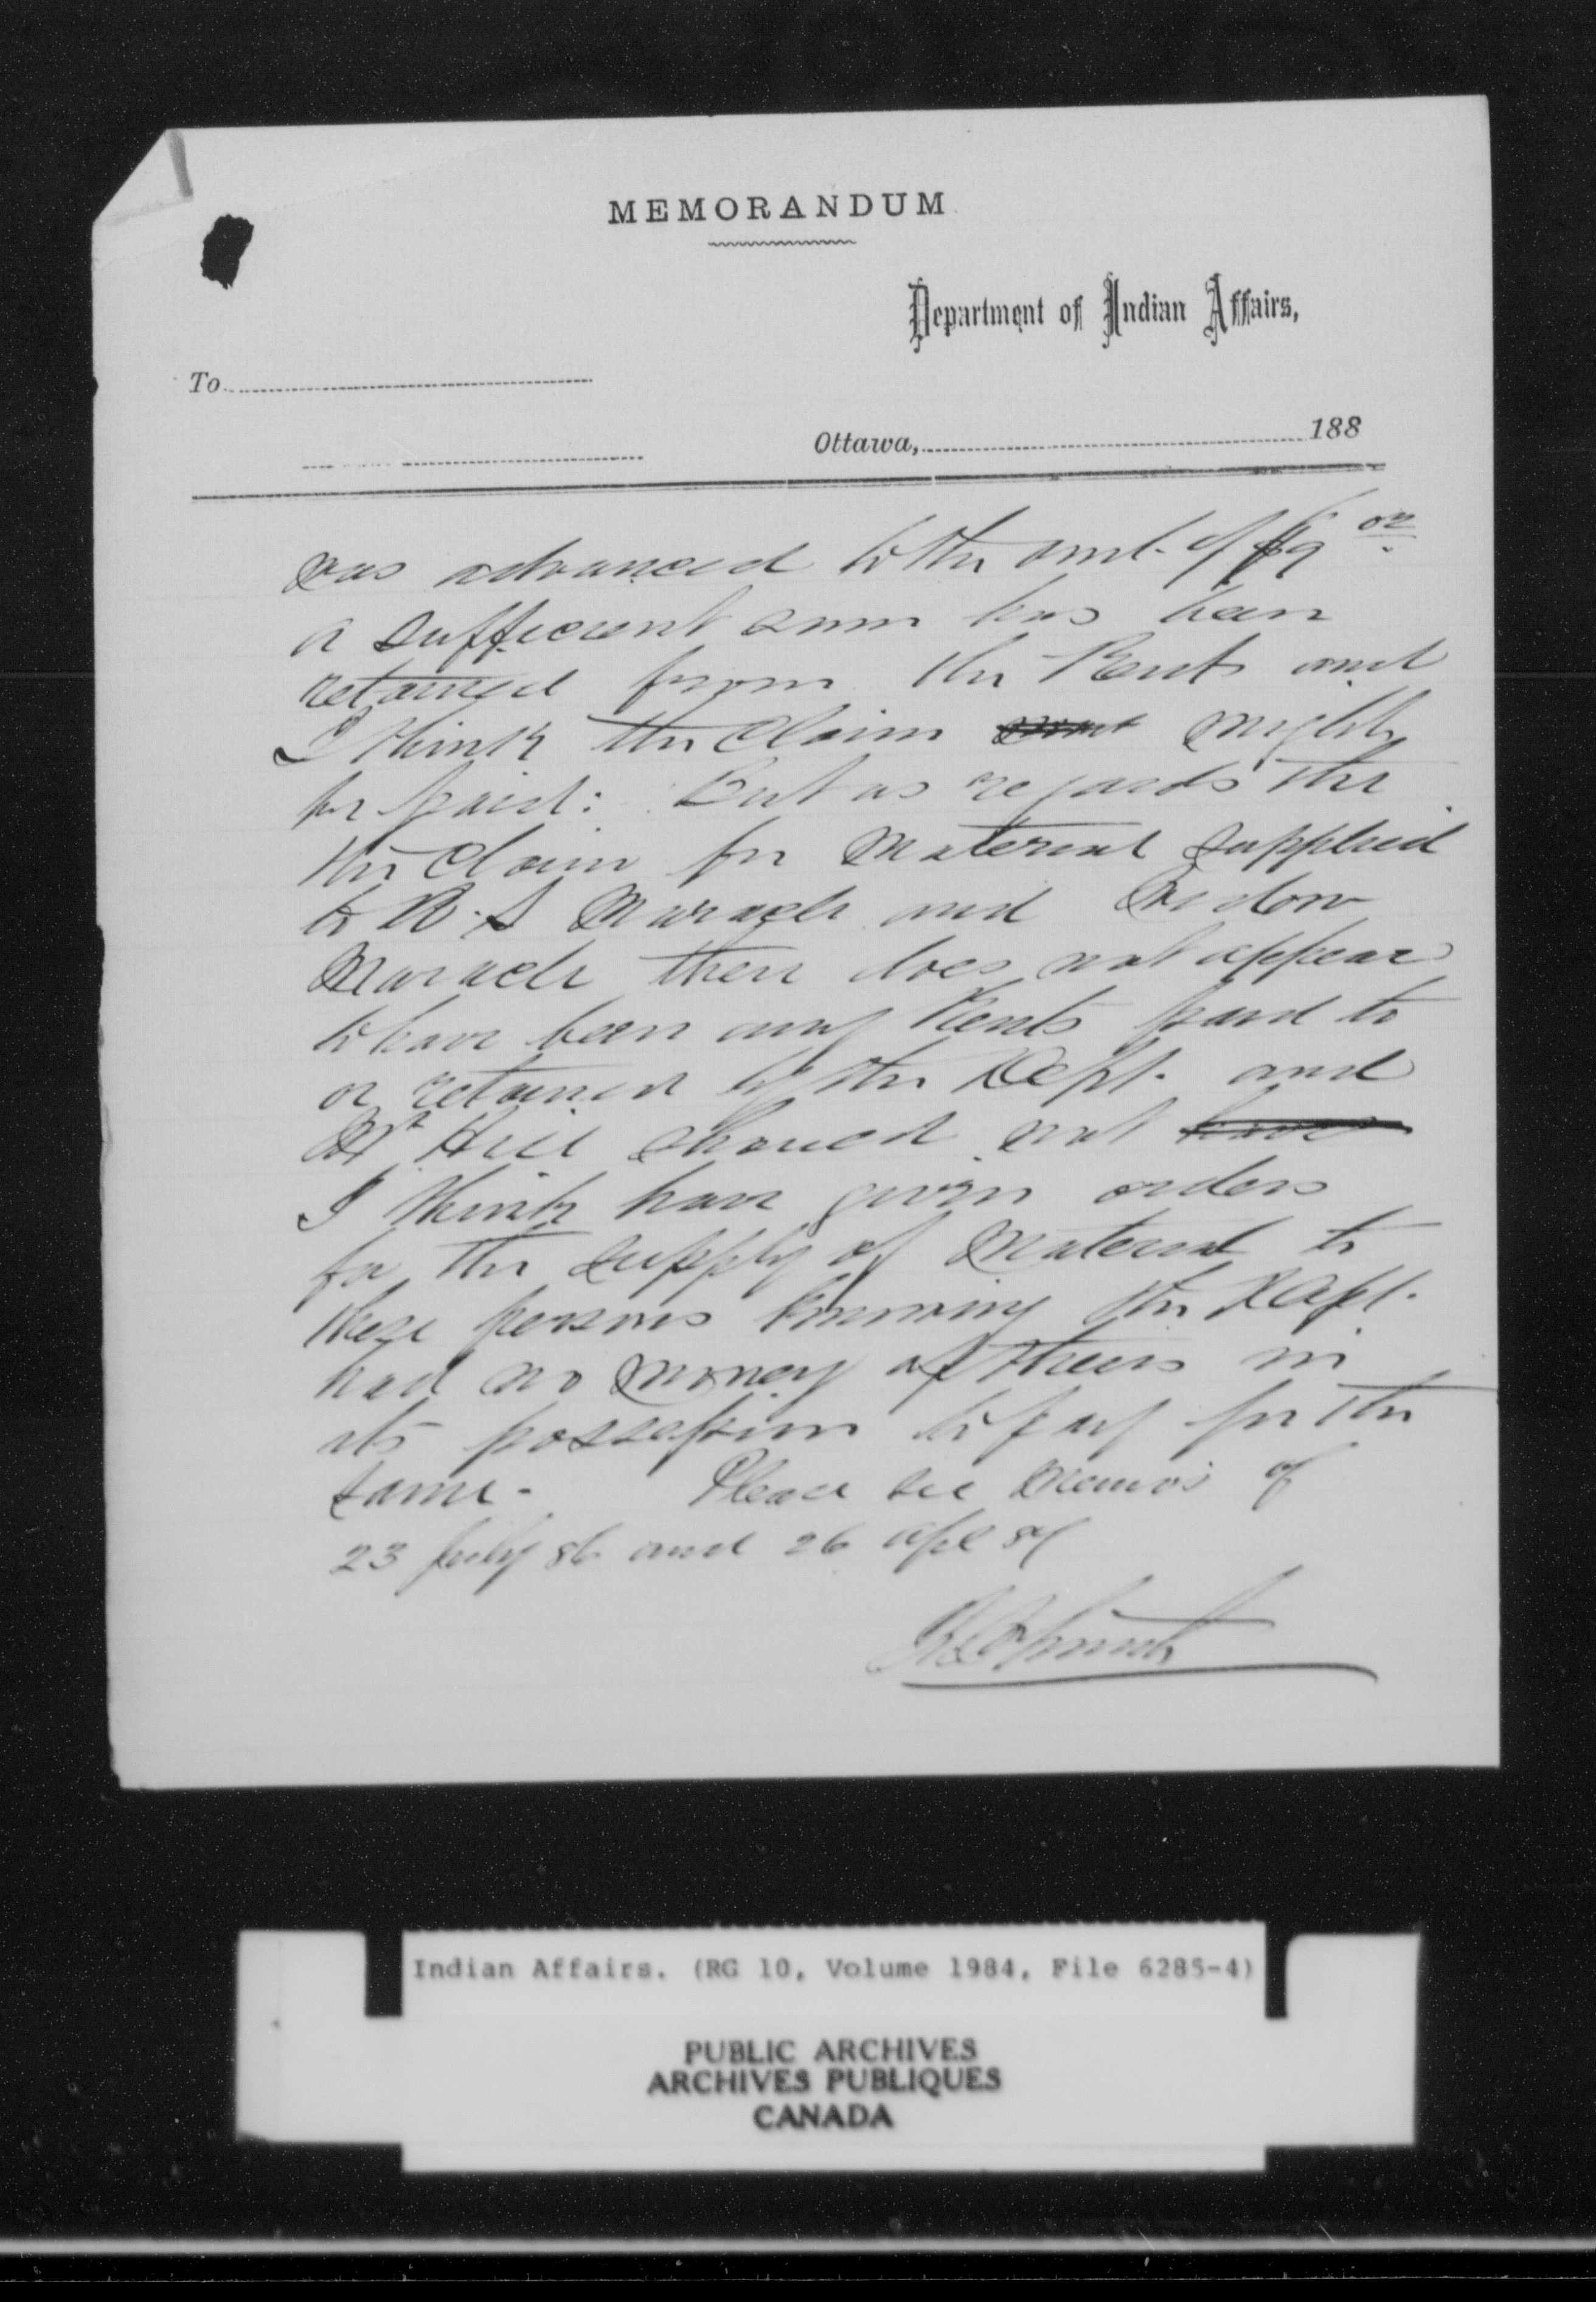 MEMORANDUM
Department of Indian Affairs,
To
Ottawa, 188
was advanced to the amt. of
a sufficient sum has been
retained from the Rents and
I think the claim might
be paid: But as regards the
the claim for material supplied
to Maracle and Widow
Maracle there does not appear
to have been any Rents paid to
or retained by the Dept. and
Mr Hill should not have
I think have given orders
for the supply of material to
these persons knowing the Dept.
had no money of theirs in
its possession to pay for the
same - Please see Memos of
23 July 86 and 26 Apl
Indian Affairs. (RG 10, Volume 1984, File 6285-4)
PUBLIC ARCHIVES
ARCHIVES PUBLIQUES
CANADA